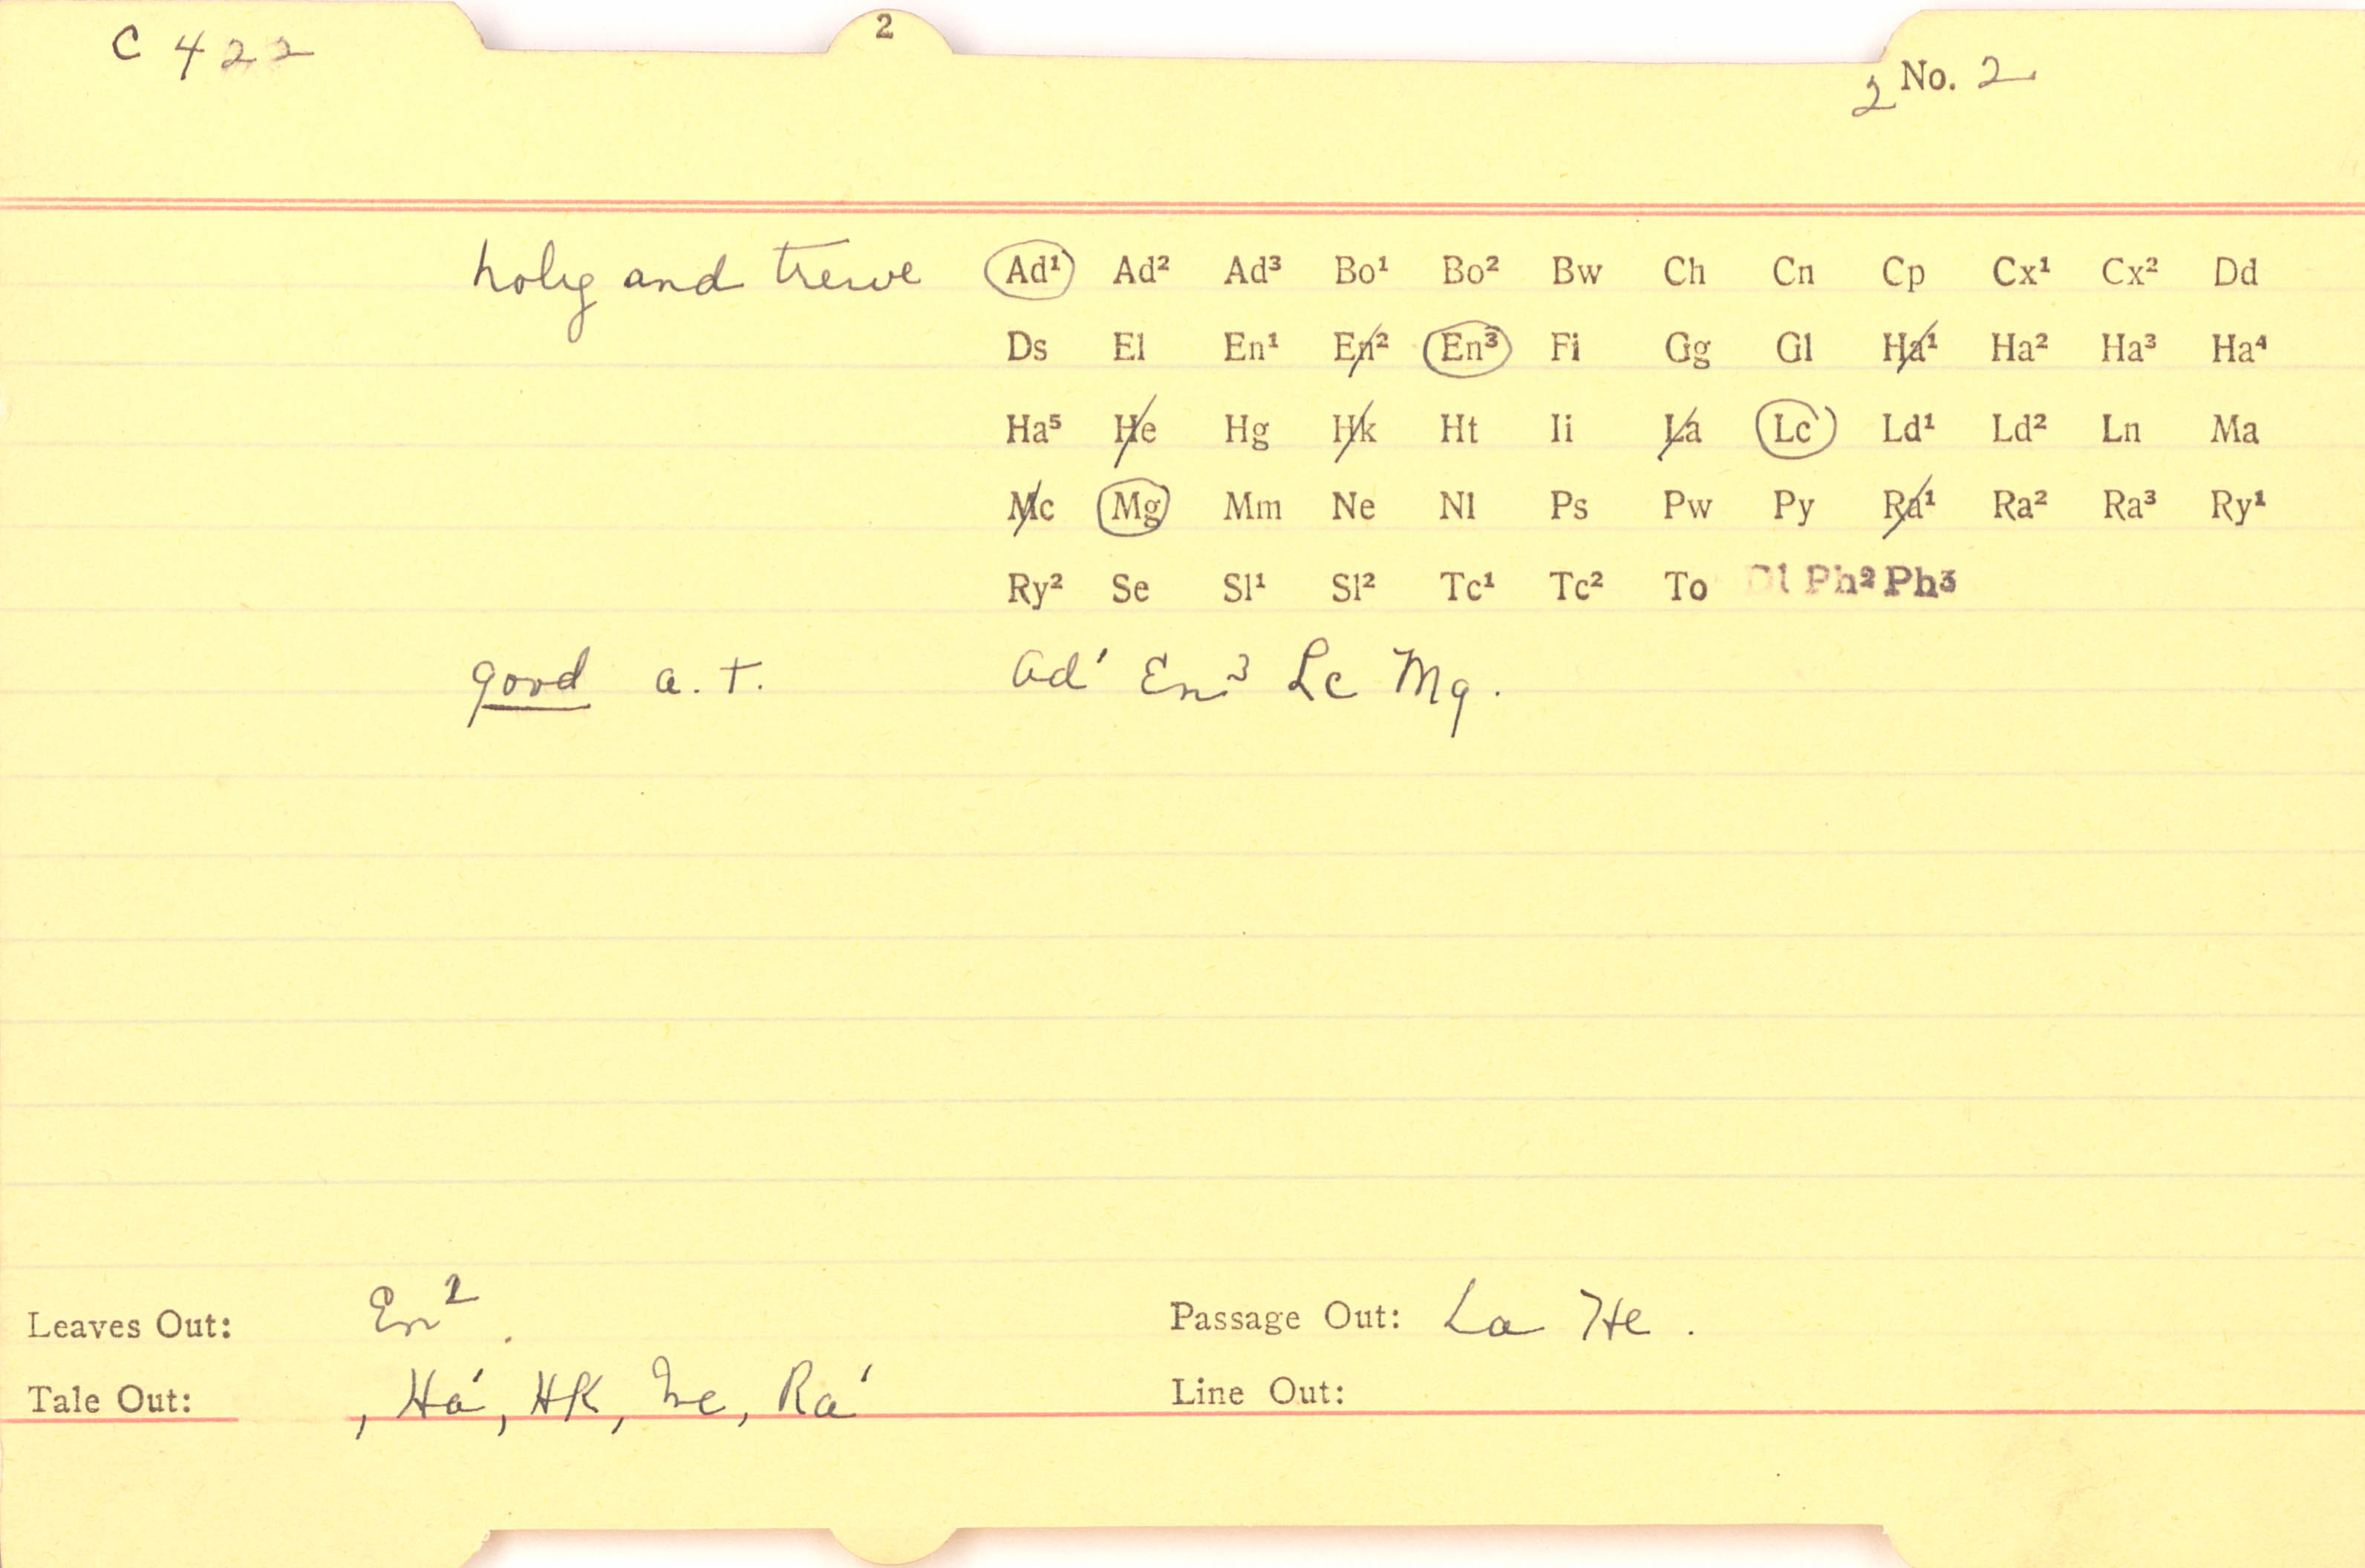 2
C 422
2 No. 2
holy and trewe Ad¹ Ad² Ad³ Bo¹ Bo² Bw Ch Cn Cp Cx¹ Cx² Dd
Ds El En¹ En² En³ Fi Gg Gl Ha¹ Ha² Ha³ Ha⁴
Ha⁵ He Hg Hk Ht Ii La Lc Ld¹ Ld² Ln Ma
Mc Mg Mm Ne Nl Ps Pw Py Ra¹ Ra² Ra³ Ry¹
Ry² Se Sl¹ Sl² Tc¹ Tc² To Dl Ph² Ph³
good a. t. Ad¹ En³ Lc Mg.
Leaves Out: En². Passage Out: La He.
Tale Out: , Ha¹, HK, Mc, Ra¹ Line Out: